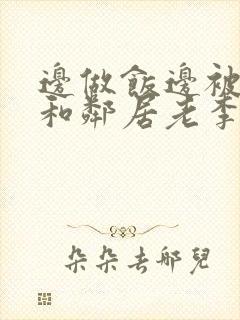 邊做飯邊被
和鄰居老李
朵朵去哪兒